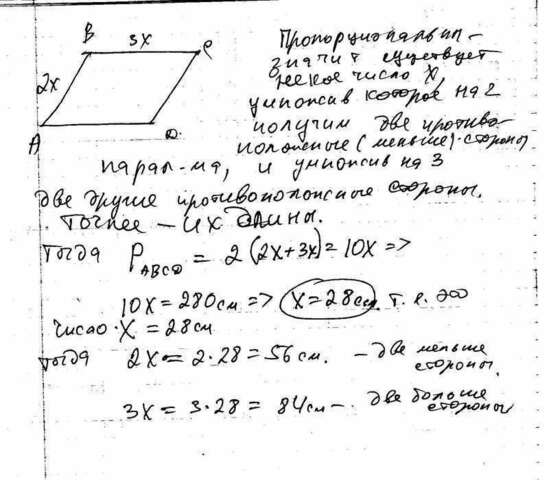 B 3x C
2x
A D
Пропорциональны -
значит существует
некое число X,
умножив которое на 2
получим две противо-
положные (меньше) стороны
парал-ма, и умножив на 3
две другие противоположные стороны.
Точнее - их длины.
Тогда P ABCD = 2(2x+3x) = 10x =>
10x = 280 см => x = 28 см. т. е. это
число X = 28 см
тогда 2x = 2·28 = 56 см. - две меньше
стороны.
3x = 3·28 = 84 см - две больше
стороны